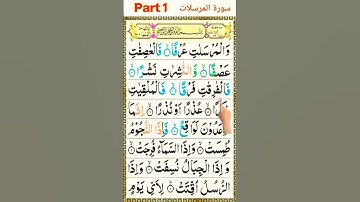 Part 1 سورة المرسلات
وَالْمُرْسَلٰتِ عُرْفًا ۙ فَالْعٰصِفٰتِ
عَصْفًا ۙ وَّالنّٰشِرٰتِ نَشْرًا ۙ
فَالْفٰرِقٰتِ فَرْقًا ۙ فَالْمُلْقِيٰتِ
عُذْرًا اَوْ نُذْرًا ۙ
تُوْعَدُوْنَ لَوَاقِعٌ ؕ فَاِذَا النُّجُوْمُ
طُمِسَتْ ۙ وَاِذَا السَّمَآءُ فُرِجَتْ ۙ
وَاِذَا الْجِبَالُ نُسِفَتْ ۙ وَاِذَا
الرُّسُلُ اُقِّتَتْ ؕ لِاَيِّ يَوْمٍ